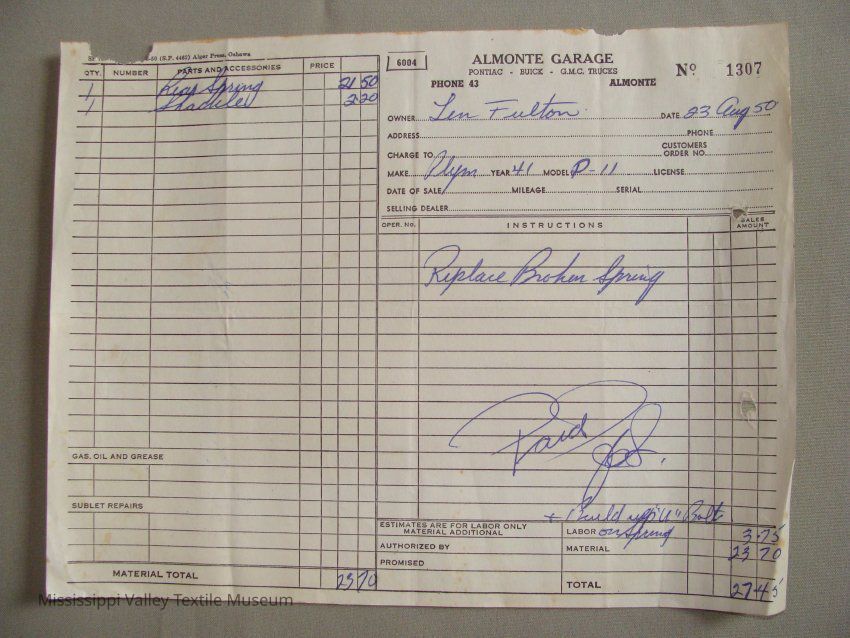 4-50 (S.P. 4462) Alger Press, Oshawa
QTY. NUMBER PARTS AND ACCESSORIES PRICE
1 Rear Spring 21 50
1 Shackle 2 20
GAS, OIL AND GREASE
SUBLET REPAIRS
MATERIAL TOTAL 23 70
6004
ALMONTE GARAGE
PONTIAC - BUICK - G.M.C. TRUCKS
PHONE 43 ALMONTE
No 1307
OWNER Len Fulton DATE 23 Aug 50
ADDRESS PHONE
CHARGE TO CUSTOMERS ORDER NO.
MAKE Plym YEAR 41 MODEL P-11 LICENSE
DATE OF SALE MILEAGE SERIAL
SELLING DEALER
OPER. No. INSTRUCTIONS SALES AMOUNT
Replace Broken Spring
Paid
+ Build up "U" Bolt
on Spring
ESTIMATES ARE FOR LABOR ONLY
MATERIAL ADDITIONAL
LABOR 3.75
AUTHORIZED BY MATERIAL 23 70
PROMISED
TOTAL 27 45
Mississippi Valley Textile Museum